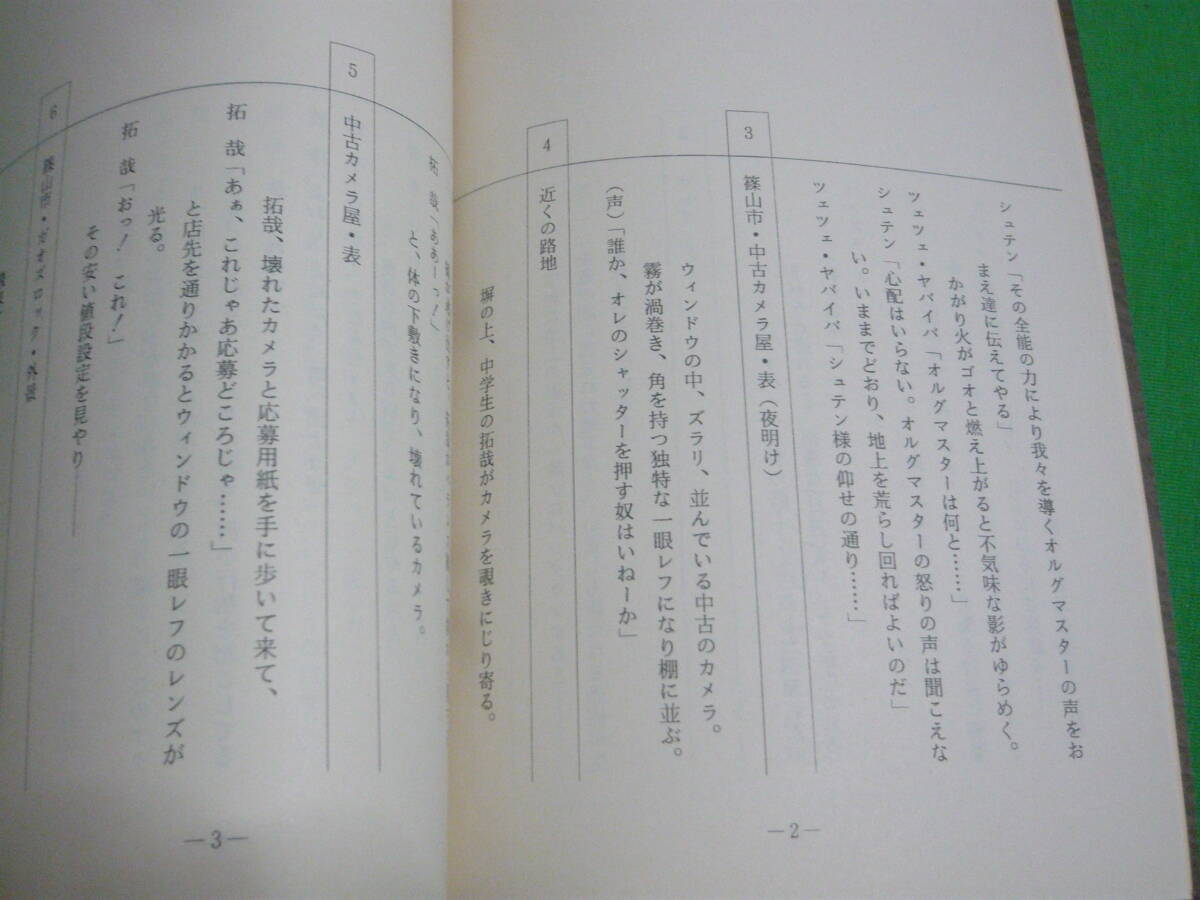 シュテン「その全能の力により我々を導くオルグマスターの声をお
まえ達に伝えてやる」
かがり火がゴオと燃え上がると不気味な影がゆらめく。
ツェツェ・ヤバイバ「オルグマスターは何と……」
シュテン「心配はいらない。オルグマスターの怒りの声は聞こえな
い。いままでどおり、地上を荒らし回ればよいのだ」
ツェツェ・ヤバイバ「シュテン様の仰せの通り……」
3 篠山市・中古カメラ屋・表（夜明け）
ウィンドウの中、ズラリ、並んでいる中古のカメラ。
霧が渦巻き、角を持つ独特な一眼レフになり棚に並ぶ。
（声）「誰か、オレのシャッターを押す奴はいねーか」
4 近くの路地
塀の上、中学生の拓哉がカメラを覗きにじり寄る。
―2―
拓哉「ああーっ！」
と、体の下敷きになり、壊れているカメラ。
5 中古カメラ屋・表
拓哉、壊れたカメラと応募用紙を手に歩いて来て、
拓哉「あぁ、これじゃあ応募どころじゃ……」
と店先を通りかかるとウィンドウの一眼レフのレンズが
光る。
拓哉「おっ！　これ！」
その安い値段設定を見やり――――
6 篠山市・ガオズロック・外景
―3―